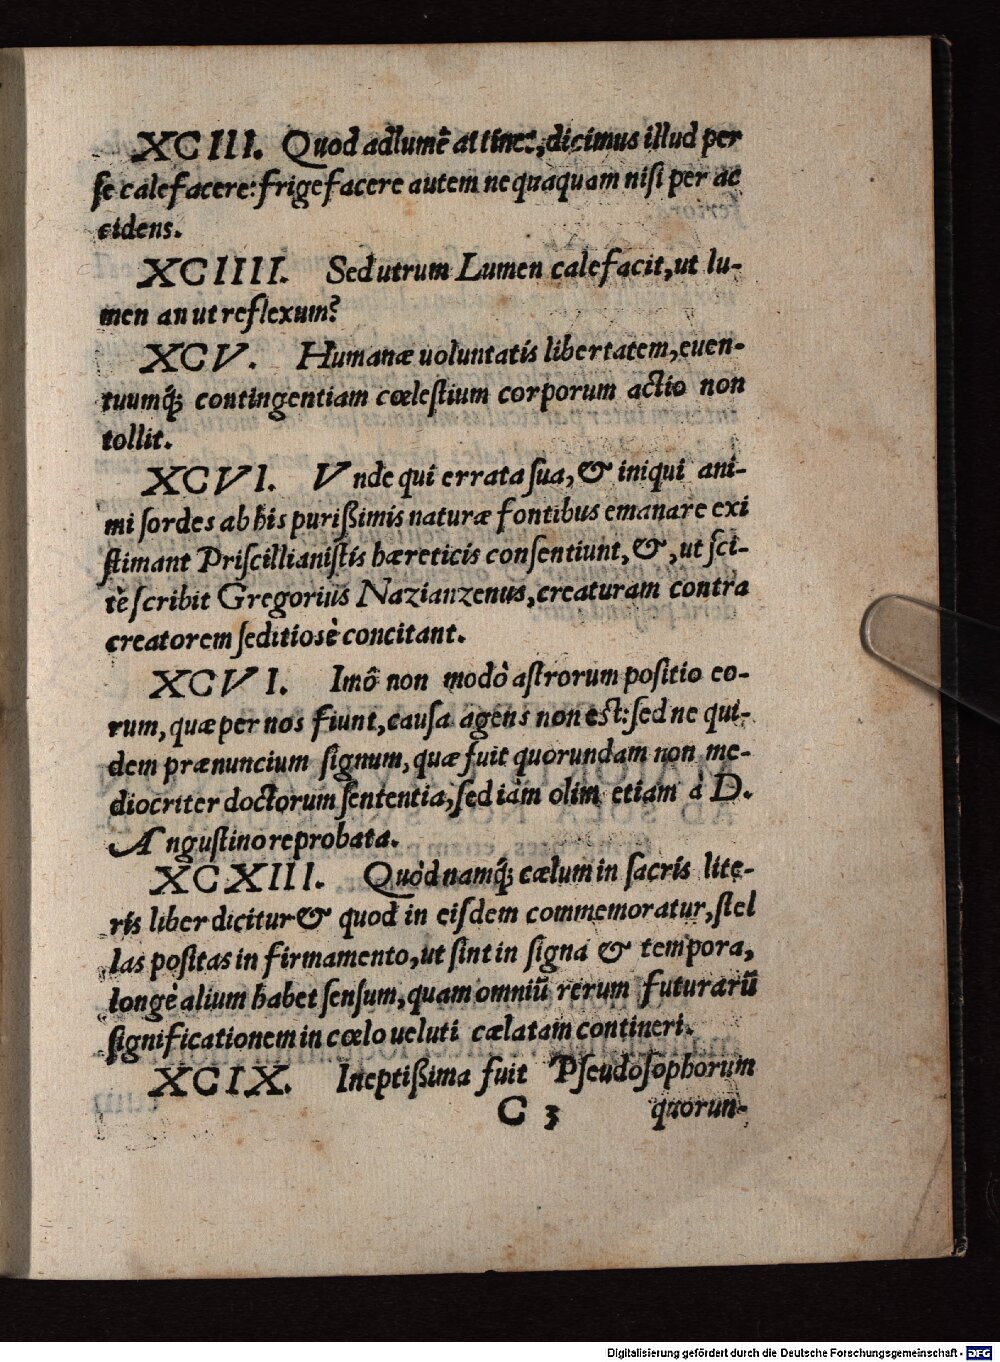 XCIII. Quod adlumẽ attinet, dicimus illud per
se calefacere: frigefacere autem nequaquam nisi per ac
cidens.
XCIIII. Sed utrum Lumen calefacit, ut lu-
men an ut reflexum?
XCV. Humanæ uoluntatis libertatem, euen-
tuumq́; contingentiam cœlestium corporum actio non
tollit.
XCVI. Vnde qui errata sua, & iniqui ani-
mi sordes ab his purißimis naturæ fontibus emanare exi
stimant Priscillianistis hæreticis consentiunt, &, ut sci-
tè scribit Gregorius Nazianzenus, creaturam contra
creatorem seditiosè concitant.
XCVI. Imô non modò astrorum positio eo-
rum, quæ per nos fiunt, causa agens non est: sed ne qui-
dem prænuncium signum, quæ fuit quorundam non me-
diocriter doctorum sententia, sed iàm olim etiam à D.
Angustino reprobata.
XCXIII. Quòd namq́; cælum in sacris lite-
ris liber dicitur & quod in eisdem commemoratur, stel
las positas in firmamento, ut sint in signa & tempora,
longè alium habet sensum, quam omniũ rerum futurarũ
significationem in cœlo ueluti cælatam contineri.
XCIX. Ineptißima fuit Pseudosophorum
C 3 quorun-
Digitalisierung gefördert durch die Deutsche Forschungsgemeinschaft - DFG